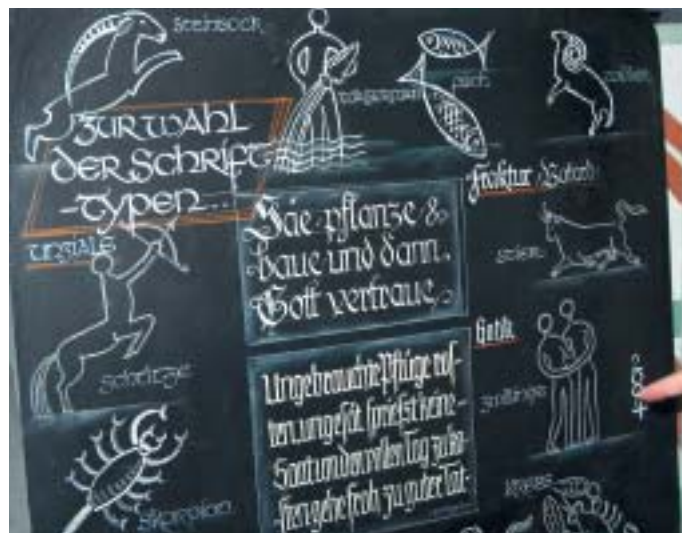 STEINBOCK
WASSERMANN
FISCH
WIDDER
ZUR WAHL
DER SCHRIFT-
-TYPEN...
Fraktur (Bastard)
UNZIALE
Säe pflanze &
baue und dann,
Gott vertraue,
STIER
Gotik
SCHÜTZE
Ungebrauchte Pflüge ros-
ten, ungesät sprießt keine
Saat und der vollen Tag zu ko-
sten gehe froh zu guter Tat-
Zwillinge
SKORPION
KREBS